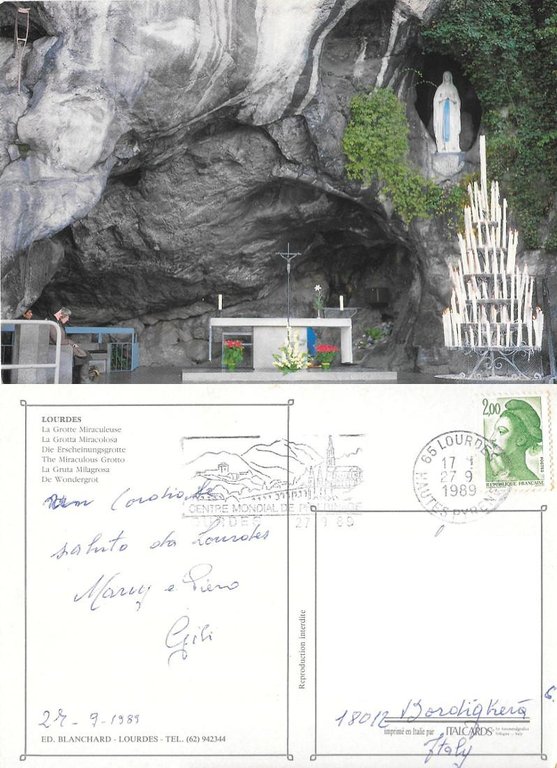 LOURDES
La Grotte Miraculeuse
La Grotta Miracolosa
Die Erscheinungsgrotte
The Miraculous Grotto
La Gruta Milagrosa
De Wondergrot
CENTRE MONDIAL DE
LOURDES 27.9.89
65 LOURDES
17 -
27 - 9
1989
HAUTES PYRENEES
2,00
POSTES
REPUBLIQUE FRANÇAISE
Cordiale
saluto da Lourdes
Mary e Piero
Gili
27-9-1989
Reproduction interdite
18012 Bordighera
imprimé en Italie par ITALCARDS
Italy
ED. BLANCHARD - LOURDES - TEL. (62) 942344